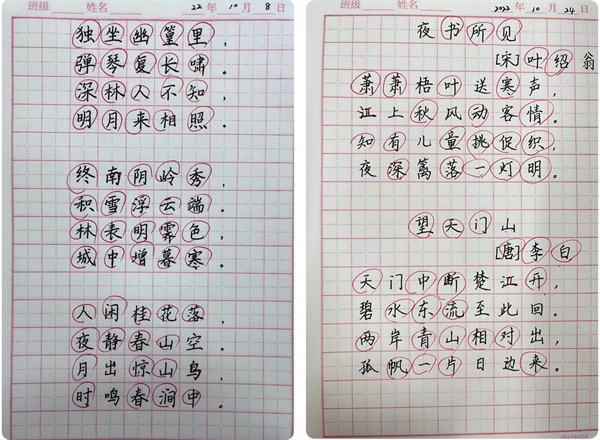 班级 姓名 22年10月8日
独坐幽篁里，
弹琴复长啸。
深林人不知，
明月来相照。
终南阴岭秀，
积雪浮云端。
林表明霁色，
城中增暮寒。
人闲桂花落，
夜静春山空。
月出惊山鸟，
时鸣春涧中。
班级 姓名 2022年10月24日
夜书所见
[宋]叶绍翁
萧萧梧叶送寒声，
江上秋风动客情。
知有儿童挑促织，
夜深篱落一灯明。
望天门山
[唐]李白
天门中断楚江开，
碧水东流至此回。
两岸青山相对出，
孤帆一片日边来。